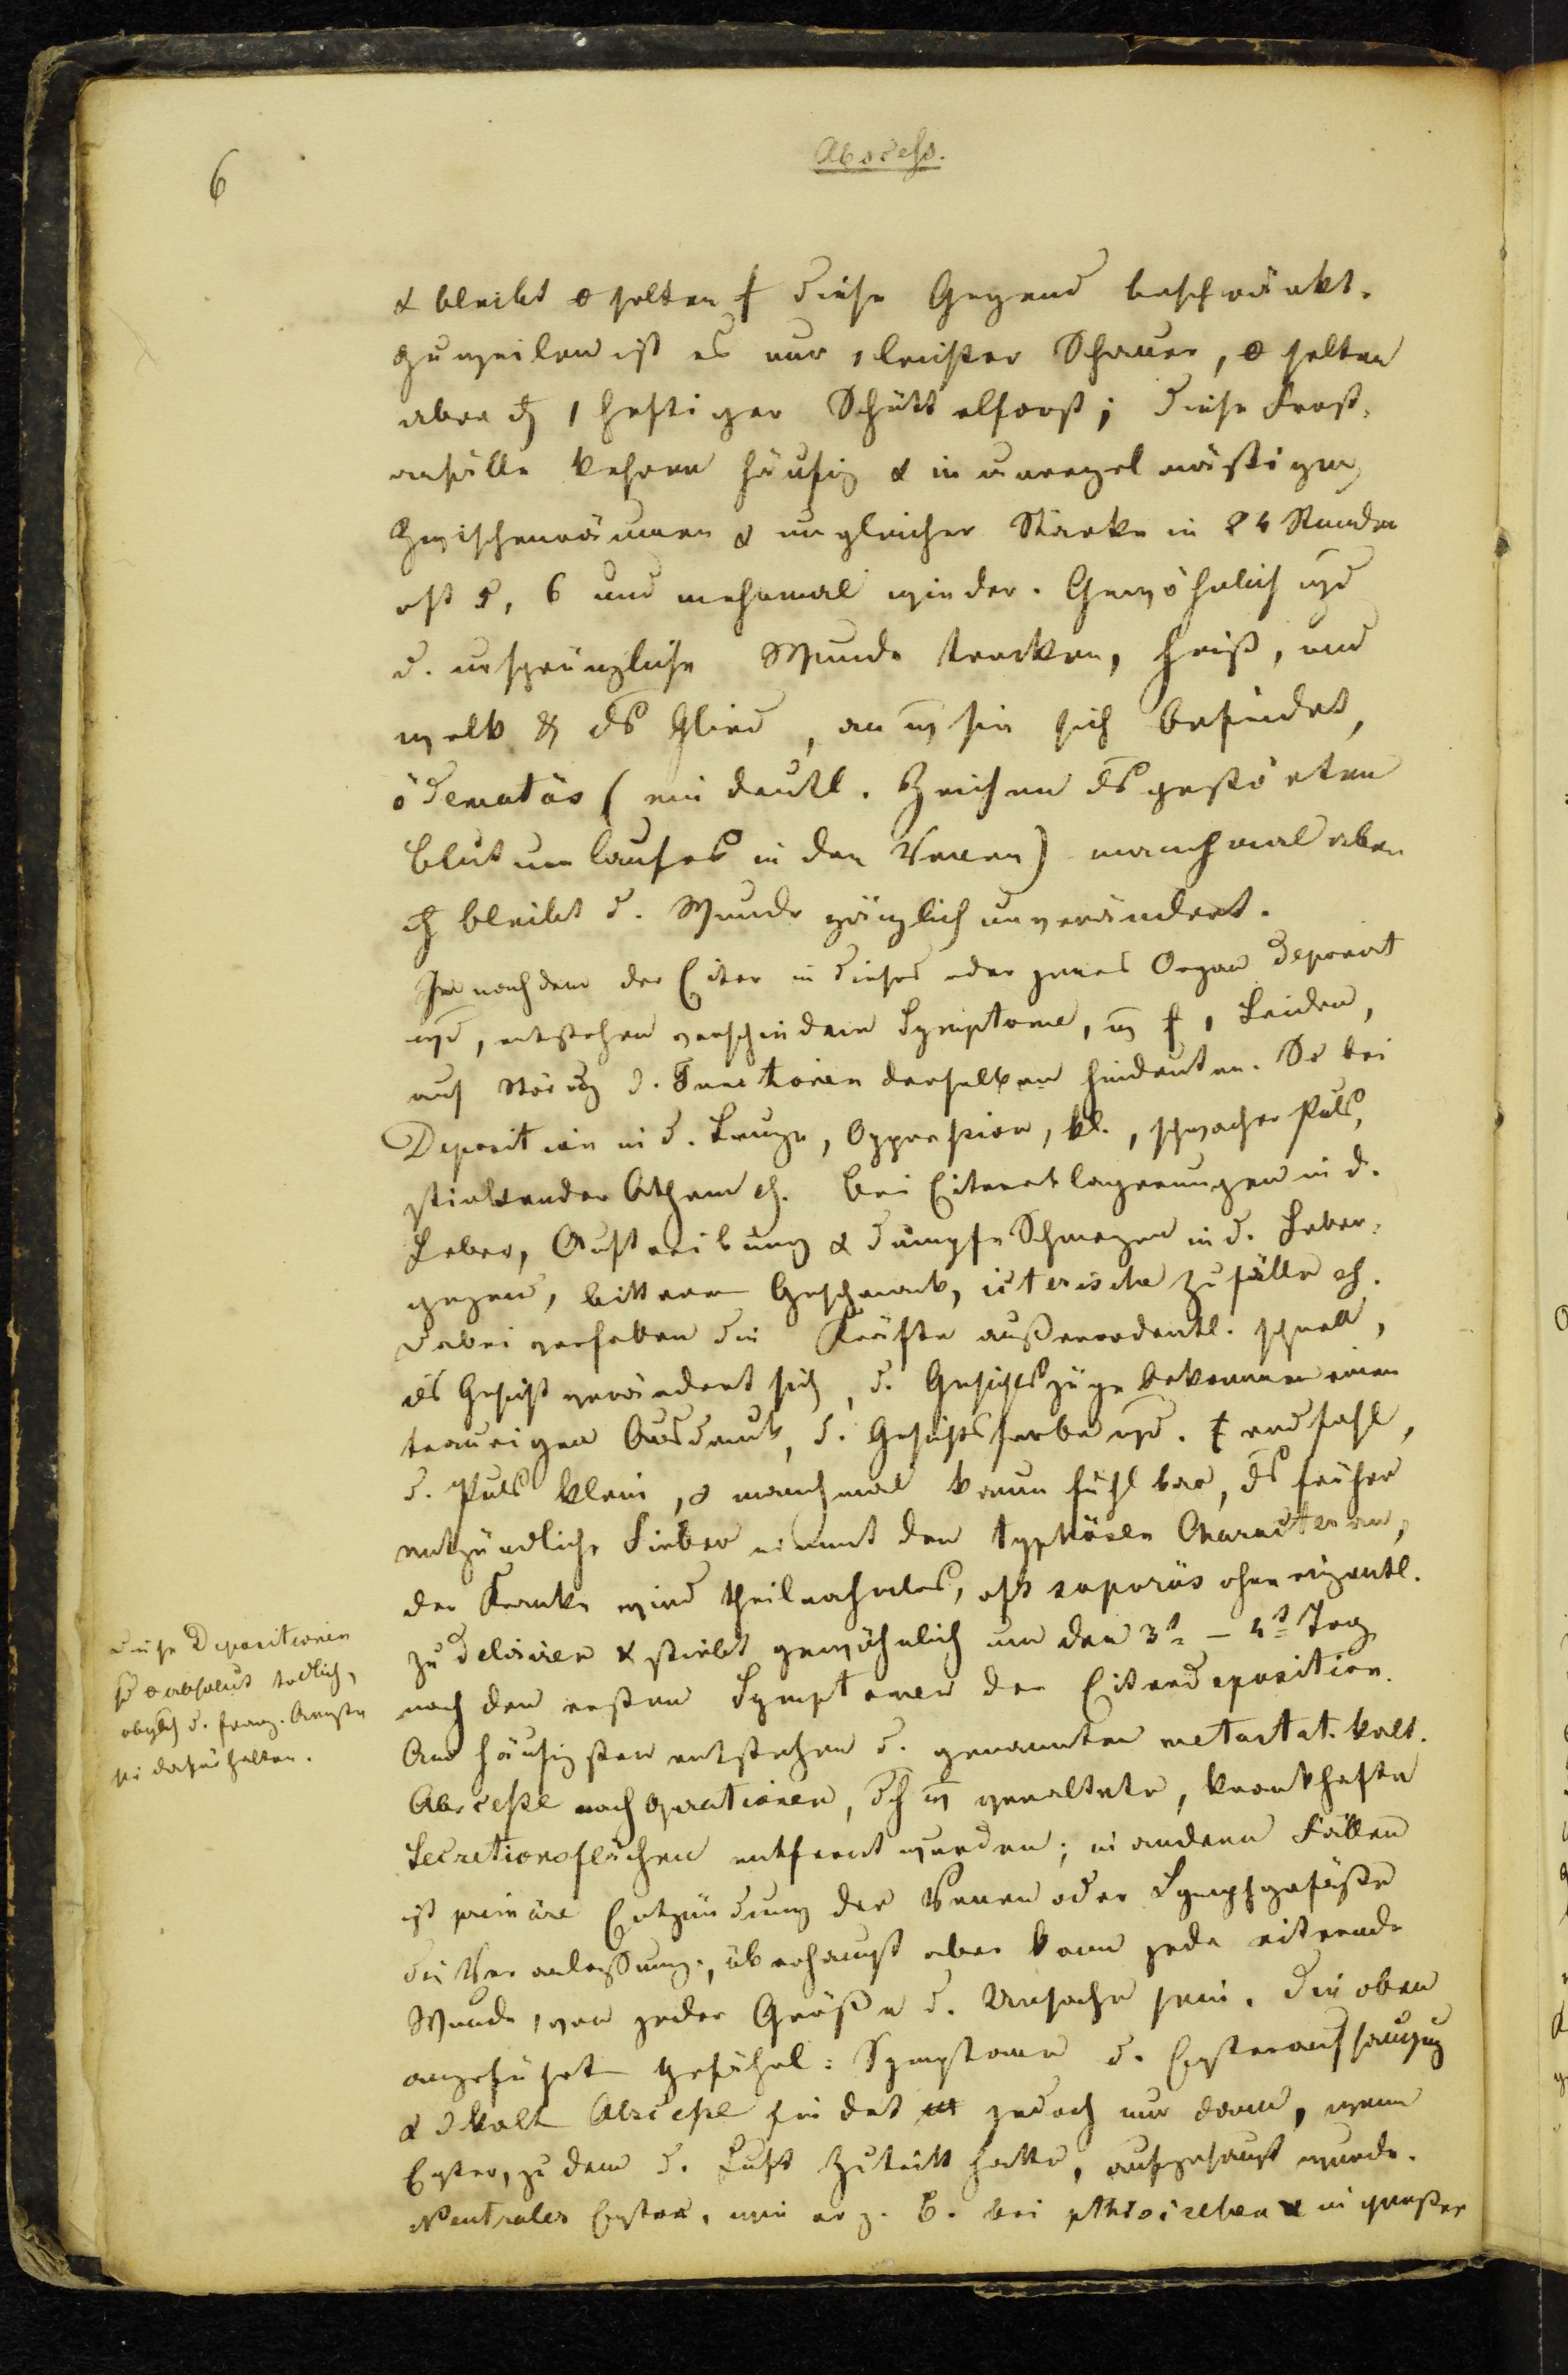 6
Abscess.
& bleibt selten diese Gegend beschränkt.
Zuweilen ist es nur 1 leichter Schauer, selten
aber 1 heftiger Schüttelfrost; diese Frost-
anfälle kehren häufig & in unregelmäßigen
Zwischenräumen & ungleicher Stärke in 24 Stunden
oft 5, 6 und mehrmal wieder. Gewöhnlich wd
d. ursprüngliche Wunde trocken, heiß, und
welk & ds Glied, an sie sich befindet,
ödematös (ein deutl. Zeichen ds gestörten
Blutumlaufes in den Venen) manchmal aber
bleibt d. Wunde gänzlich unverändert.
Je nachdem der Eiter in dieses oder jenes Organ deponirt
wd, entstehen verschiedene Symptome, Leiden,
auf Störug d. Functionen derselben hindeuten. So bei
Deposition in d. Lunge, Oppression, kl., schwacher Puls,
stinkender Athem Bei Eiterablagerungen in d.
Leber, Auftreibung & dumpfe Schmerzen in d. Leber-
gegend, bitterer Geschmack, icterische Zufälle
dabei die Kräfte außerordentl. schnell,
ds Gesicht verändert sich, d. Gesichtszüge bekommen einen
traurigen Ausdruck, d. Gesichtsfarbe wd. erdfahl,
d. Puls klein, & manchmal kaum fühlbar, ds früher
entzündliche Fieber nimmt den typhösen Character an,
der Kranke wird theilnahmlos, oft soporös ohne eigentl.
zu deliriren & stirbt gewöhnlich um den 3t. – 4t. Tag
nach den ersten Symptomen der Eiterdeposition.
Am häufigsten entstehen d. genannten metastat. kalt.
Abscesse nach Operationen, veraltete, krankhafte
Secretionsflächen entfernt wurden; in andern Fällen
ist primäre Entzündung der Venen oder Lymphgefäße
die Veranlassung, überhaupt aber kann jede eiternde
Wunde, von jeder Größe d. Ursache sein. Die oben
angeführt gefährl: Symptome d. Eyteraufsaugug
& d kalt Abscesse findet jedoch nur dann, wenn
Eyter, zu dem d. Luft Zutritt hatte, aufgesaugt wurde.
Neutraler Eyter, wie er z. B. bei in großer
Diese Depositionen
absolut tödlich,
obgleich d. franz. Aerzte
sie dafür halten.